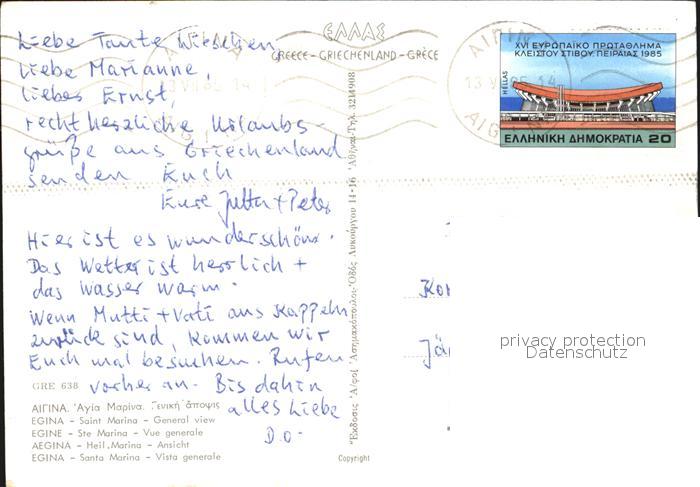 Liebe Tante Wieschen,
liebe Marianne,
liebes Ernst,
recht herzliche Urlaubs-
grüße aus Griechenland
senden Euch
Eure Jutta + Peter
Hier ist es wunderschön.
Das Wetter ist herrlich +
das Wasser warm.
Wenn Mutti + Vati aus Kappeln
zurück sind, kommen wir
Euch mal besuchen. Rufen
vorher an. Bis dahin
alles Liebe
D.O.
GRE 638
ΑΙΓΙΝΑ. Ἁγία Μαρίνα. Γενική ἄποψις
EGINA – Saint Marina – General view
EGINE – Ste Marina – Vue generale
AEGINA – Heil. Marina – Ansicht
EGINA – Santa Marina – Vista generale
ΕΛΛΑΣ
GREECE – GRIECHENLAND – GRÈCE
Ἔκδοσις Ἀ/φοὶ Ἀσημακόπουλοι-Ὁδὸς Λυκούργου 14-16 Ἀθῆναι-Τηλ. 3214908
Copyright
XVI ΕΥΡΩΠΑΪΚΟ ΠΡΩΤΑΘΛΗΜΑ
ΚΛΕΙΣΤΟΥ ΣΤΙΒΟΥ, ΠΕΙΡΑΙΑΣ 1985
HELLAS
ΕΛΛΗΝΙΚΗ ΔΗΜΟΚΡΑΤΙΑ 20
ΑΙΓΙΝΑ
privacy protection
Datenschutz